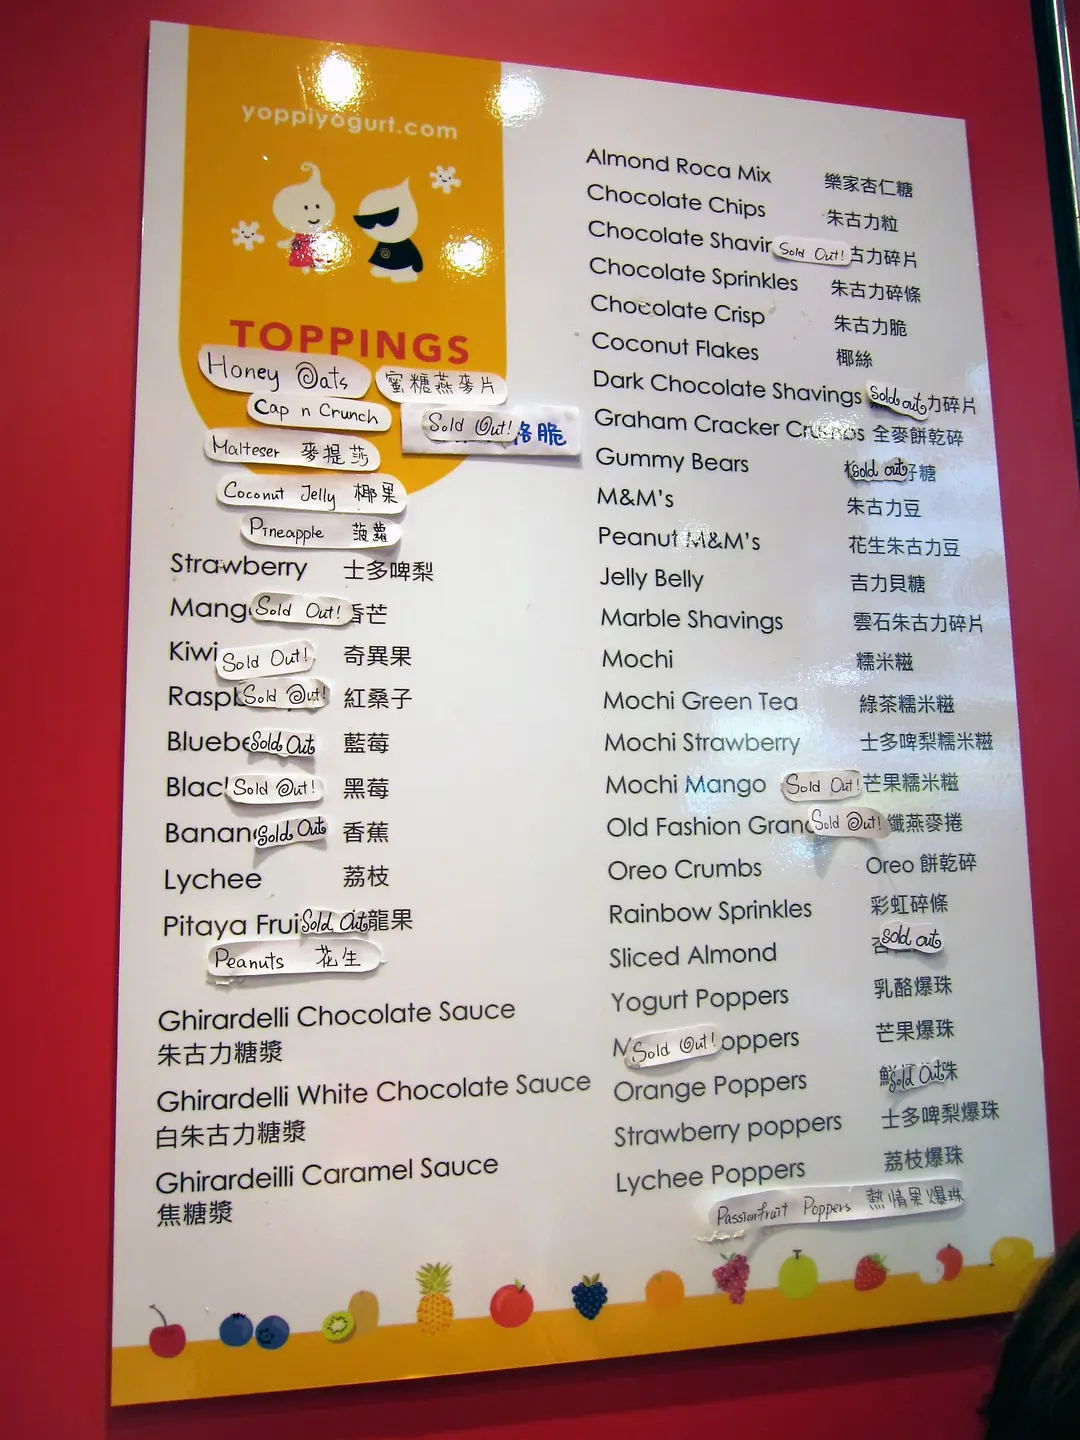 yoppiyogurt.com
TOPPINGS
Honey Oats 蜜糖燕麥片
Cap n Crunch
Sold Out! 脆
Malteser 麥提莎
Coconut Jelly 椰果
Pineapple 菠蘿
Strawberry 士多啤梨
Mang Sold Out! 香芒
Kiwi Sold Out! 奇異果
Rasp Sold Out! 紅桑子
Bluebe Sold Out 藍莓
Blac Sold Out! 黑莓
Banan Sold Out 香蕉
Lychee 荔枝
Pitaya Frui Sold Out 龍果
Peanuts 花生
Ghirardelli Chocolate Sauce
朱古力糖漿
Ghirardelli White Chocolate Sauce
白朱古力糖漿
Ghirardeilli Caramel Sauce
焦糖漿
Almond Roca Mix 樂家杏仁糖
Chocolate Chips 朱古力粒
Chocolate Shavin Sold Out! 古力碎片
Chocolate Sprinkles 朱古力碎條
Chocolate Crisp 朱古力脆
Coconut Flakes 椰絲
Dark Chocolate Shavings Sold out 力碎片
Graham Cracker Crumbs 全麥餅乾碎
Gummy Bears Sold out 仔糖
M&M's 朱古力豆
Peanut M&M's 花生朱古力豆
Jelly Belly 吉力貝糖
Marble Shavings 雲石朱古力碎片
Mochi 糯米糍
Mochi Green Tea 綠茶糯米糍
Mochi Strawberry 士多啤梨糯米糍
Mochi Mango Sold Out! 芒果糯米糍
Old Fashion Gran Sold Out! 纖燕麥捲
Oreo Crumbs Oreo 餅乾碎
Rainbow Sprinkles 彩虹碎條
Sliced Almond 杏 Sold out
Yogurt Poppers 乳酪爆珠
M Sold Out! oppers 芒果爆珠
Orange Poppers 鮮 Sold Out 珠
Strawberry poppers 士多啤梨爆珠
Lychee Poppers 荔枝爆珠
Passionfruit Poppers 熱情果爆珠